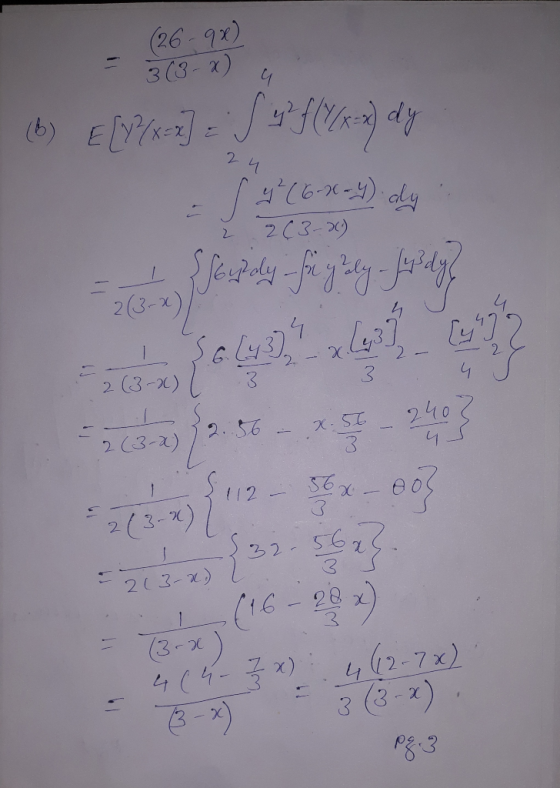 = (26 - 9x) / 3(3 - x)
(b) E[Y²/X=x] = ∫₂⁴ y² f(Y/X=x) dy
= ∫₂⁴ y²(6-x-y) / 2(3-x) dy
= 1/2(3-x) {∫6y²dy - ∫x y²dy - ∫y³dy}
= 1/2(3-x) {6·[y³]₂⁴/3 - x·[y³]₂⁴/3 - [y⁴]₂⁴/4}
= 1/2(3-x) {2·56 - x·56/3 - 240/4}
= 1/2(3-x) {112 - 56/3 x - 80}
= 1/2(3-x) {32 - 56/3 x}.
= 1/(3-x) (16 - 28/3 x)
= 4(4 - 7/3 x) / (3-x) = 4(12-7x) / 3(3-x)
pg.3